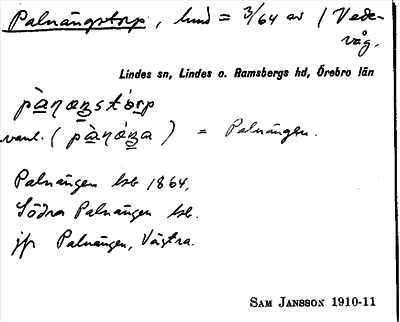 Palnängstorp, lund = 3/64 av / Vede-
våg.
Lindes sn, Lindes o. Ramsbergs hd, Örebro län
vanl. ( ) = Palnängen.
Palnängen lsb 1864,
Södra Palnängen lsb.
jfr Palnängen, Västra.
SAM JANSSON 1910-11